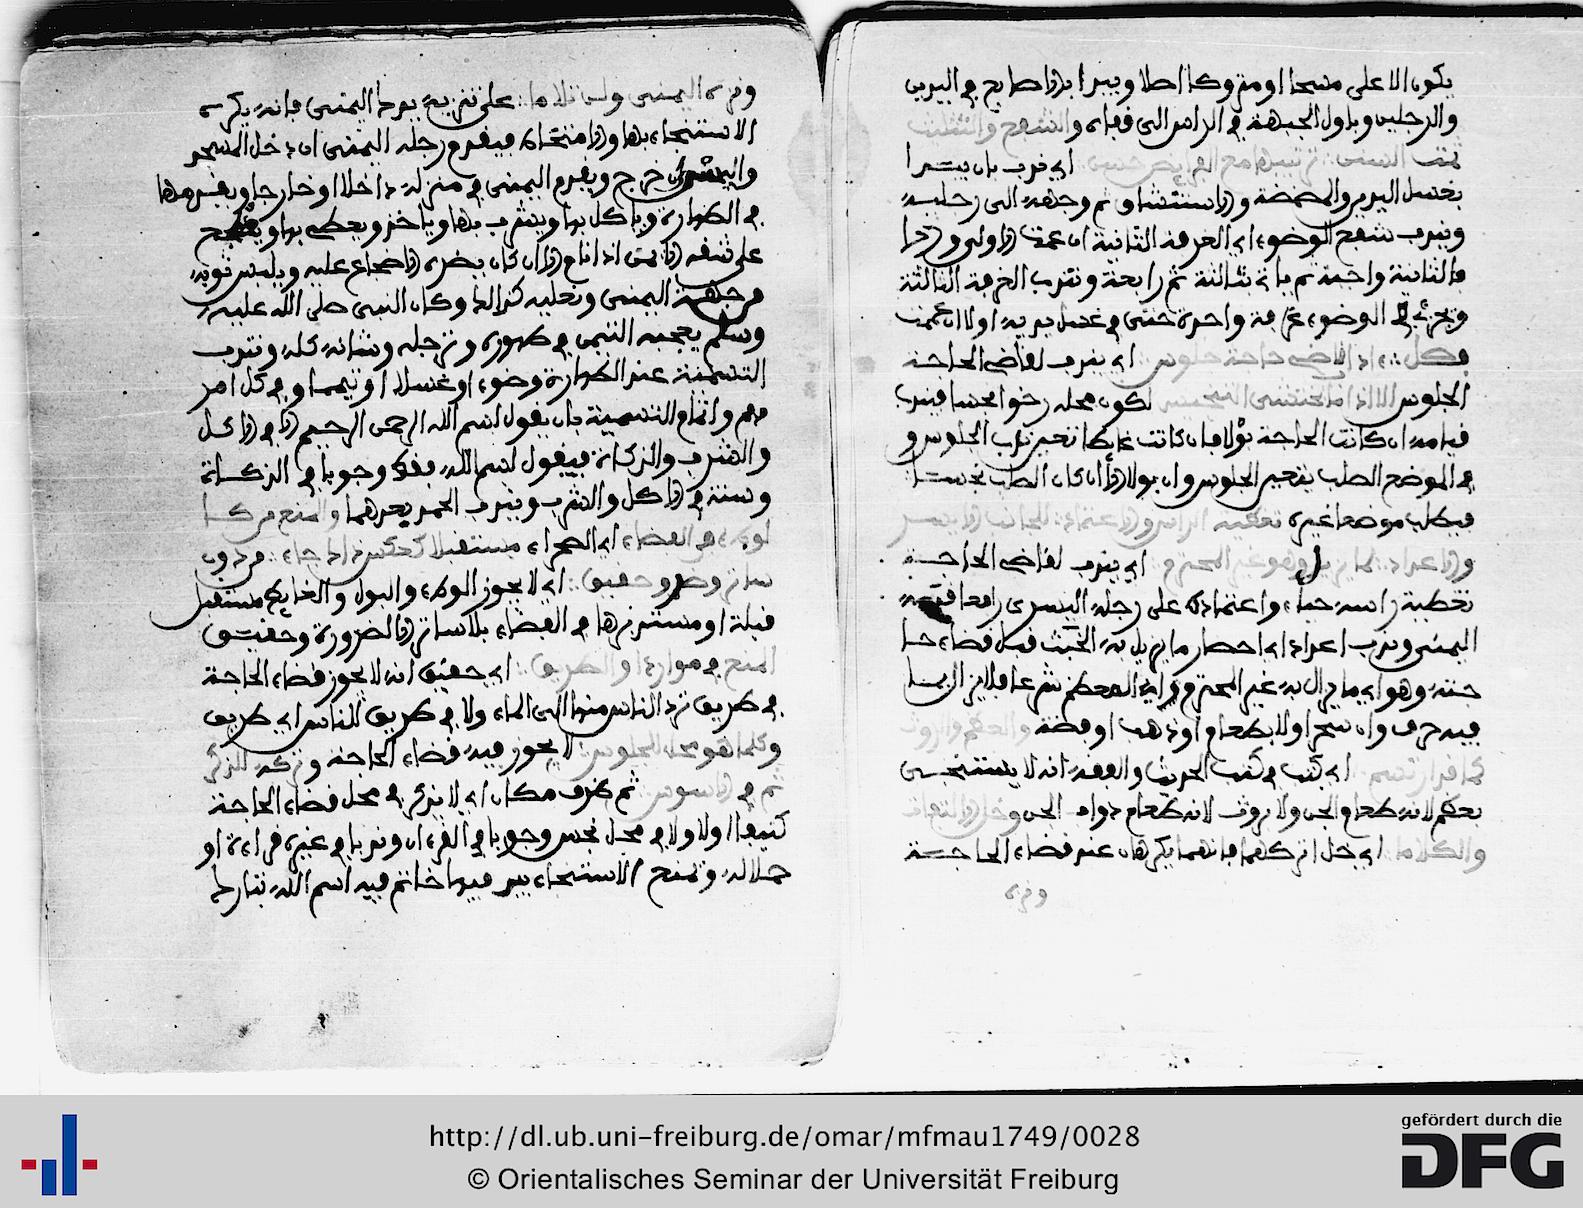 يكون الاعلى ممسحا او متروكا اصلا ويبدا بالاصابع في اليدين
والرجلين وباول الجبهة في الراس الى قفاه والشفع والتثليث
اي ندب بان يبتدا
بغسل اليدين والمضمضة والاستنشاق ثم وجهه الى رجليه
وندب شفع الوضوء اي الغرفة الثانية ان عمت الاولى والا
فالثانية واجبة ثم ياتي بثالثة ثم رابعة وتندب الغرفة الثالثة
وتجزئ في الوضوء غرفة واحدة حتى في غسل يديه اولا ان عمت
فصل اي يندب لقاضي الحاجة
الجلوس لكون محله رخوا نجسا فيندب
قيامه ان كانت الحاجة بولا فان كانت غايطا تعين ندب الجلوس و
في الموضع الصلب يتعين الجلوس وان بولا الا ان كان الصلب نجسا
فيطلب موضعا غيره تغطية الراس والاعتماد
والاعداد لمزيل وهو غير المحترم اي يندب لقاضي الحاجة
تغطية راسه حياء واعتماده على رجله اليسرى رافعا عقب
اليمنى وندب اعداد اي احضار ما يزيل به الخبث قبل قضاء حا
جته وهو اي ما يزال به غير المحترم
فيه حرف وان سحرا ولا بطعام او ذهب او فضة والعظم والروث
اي كتب في كتب الحديث والفقه انه لا يستنجى
بعظم لانه طعام الجن ولا بروث لانه طعام دواب الجن وخل الالتفات
والكلاما اي خل اتركهما فانهما يكرهان عند قضاء الحاجة
وذي
على تنزيه يد اليمنى فانه يكره
الاستنجاء بها والامتخاط فيقدم رجله اليمنى ان دخل المسجد
واليسرى ان خرج ويقدم اليمنى في منزله داخلا او خارجا ويقدمها
في الطهارة وياكل بها ويشرب بها وياخذ ويعطي بها ويضطجع
على شقه الايمن اذا نام الا ان كان يضره الاضجاع عليه ويلبس ثوبه
من جهته اليمنى ونعليه كذالك وكان النبي صلى الله عليه
وسلم يعجبه التيمن في طهوره وترجله وشانه كله وتندب
التسمية عند الطهارة وضوء او غسلا او تيمما وفي كل امر
مهم واتمام التسمية بان يقول بسم الله الرحمن الرحيم الا في الاكل
والشرب والزكاة فيقول بسم الله فقط وجوبا في الزكاة
وسنة في الاكل والشرب ويندب الحمد بعدهما وامنع
لوطء في الفضاء اي الصحراء مستقبلا كعكس ذا اذ جاء من دون
ساتر وضر وحقيق اي لا يجوز الوطء والبول والغايط مستقبل
قبلة او مستدبرها في الفضاء بلا ساتر الا لضرورة وحقيق
المنع في موارد او الطريق اي حقيق انه لا يجوز قضاء الحاجة
في طريق ترد الناس منها الى الماء ولا في طريق للناس اي طريق
وكلما هو محل الجلوس لا يجوز فيه قضاء الحاجة وتركه للذكر
ثم عرف مكان اي لا يذكر في محل قضاء الحاجة
كنيفا اولا ولا في محل نجس وجوبا في القرءان وندبا في غيره قراءة او
حلاله وتمنع الاستنجاء بيد فيها خاتم فيه اسم الله تبارك
http://dl.ub.uni-freiburg.de/omar/mfmau1749/0028
© Orientalisches Seminar der Universität Freiburg
gefördert durch die
DFG